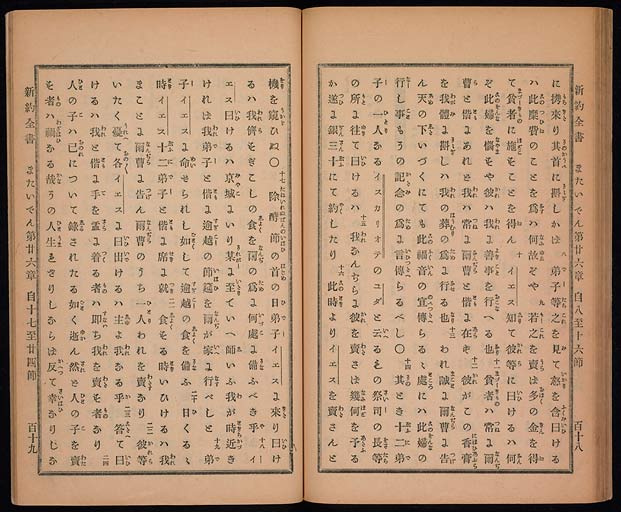 新約全書 またいでん第廿六章 自八至十六節 百十八
に携來り其首に斟しかば 八 弟子等之を見て怒を含曰ける
ハ此糜費のことを爲ハ何故ぞや 九 若之を賣ば多の金を得
て貧者に施すことを得ん 十 イエス知て彼等に曰けるハ何
ぞ此婦を惱すや彼ハ我に善事を行へる也 十一 貧者ハ常に爾
曹と偕にあれど我ハ常に爾曹と偕に在ず 十二 彼がこの香膏
を我體に斟しハ我の葬の爲に行る也 十三 われ誠に爾曹に告
ん天の下いづくにても此福音の宣傳らるゝ處にハ此婦の
行し事もその記念の爲に言傳らるべし〇 十四 其とき十二弟
子の一人なるイスカリオテのユダと云るもの祭司の長等
の所に往て曰けるハ 十五 我なんぢらに彼を賣さば幾何を予る
か遂に銀三十にて約したり 十六 此時よりイエスを賣さんと
機を窺ひぬ〇 十七 除酵節の首の日弟子イエスに來り曰け
るハ我儕すぎこしの食を爾の爲に何處に備ふべき乎 十八 イ
エス曰けるハ京城にいり某に至ていへ師いふ我が時近き
ければ我弟子と偕に逾越の節筵を爾が家に行べしと 十九 弟
子イエスに命ぜられし如して逾越の食を備ふ 二十 日くるゝ
時イエス十二弟子と偕に席に就 廿一 食する時いひけるハ我
まことに爾曹に告ん爾曹のうち一人われを賣すなり 廿二 彼等
いたく憂て各イエスに曰出けるハ主よ我なる乎 廿三 答て曰
けるハ我と偕に手を盂に着る者ハ即ち我を賣す者なり 廿四
人の子ハ己について錄されたる如く逝ん然ど人の子を賣
す者ハ禍なる哉その人生れざりしならば反て幸なりしな
新約全書 またいでん第廿六章 自十七至廿四節 百十九